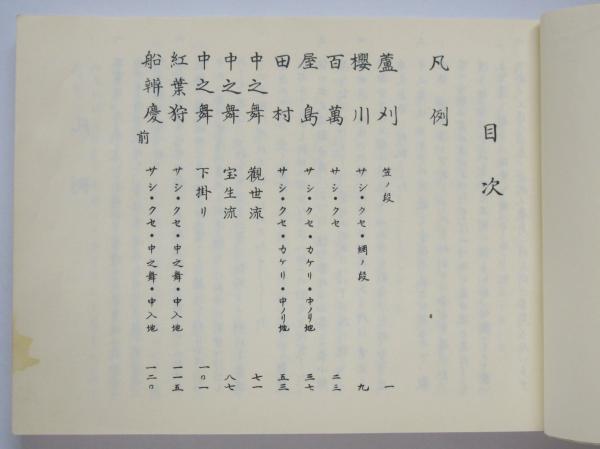 目次
凡例
蘆刈 笠ノ段 一
櫻川 サシ・クセ・網ノ段 九
百萬 サシ・クセ 二三
屋島 サシ・クセ・カケリ・中ノリ地 三七
田村 サシ・クセ・カケリ・中ノリ地 五三
中之舞 觀世流 七一
中之舞 宝生流 八七
中之舞 下掛リ 一〇一
紅葉狩 サシ・クセ・中之舞・中入地 一一五
船辨慶 前 サシ・クセ・中之舞・中入地 一二〇